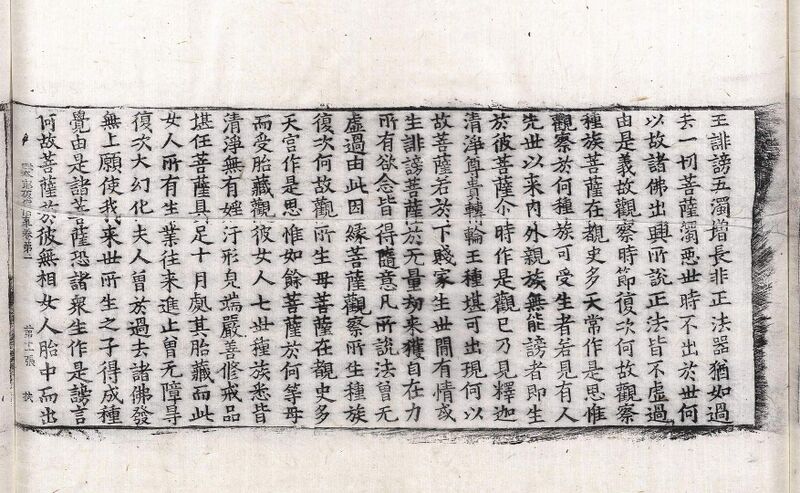 王誹謗五濁增長非正法器猶如過
去一切菩薩濁惡世時不出於世何
以故諸佛出興所說正法皆不虛過
由是義故觀察時節復次何故觀察
種族菩薩在覩史多天常作是思惟
觀察於何種族可受生者若見有人
先世以來內外親族無能謗者即生
於彼菩薩尒時作是觀已乃見釋迦
清淨尊貴轉輪王種堪可出現何以
故菩薩若於下賤家生世間有情或
生誹謗菩薩於无量劫來獲自在力
所有欲念皆得隨意凡所說法曾无
虛過由此因緣菩薩觀察所生種族
復次何故觀所生母菩薩在覩史多
天宮作是思惟如餘菩薩於何等母
而受胎藏觀彼女人七世種族悉皆
清淨無有婬汙形皃端嚴善修戒品
堪任菩薩具足十月處其胎藏而此
女人所有生業往來進止曾无障㝵
復次大幻化夫人曾於過去諸佛發
無上願使我來世所生之子得成種
覺由是諸菩薩恐諸衆生作是謗言
何故菩薩於彼無相女人胎中而出
卷第 張